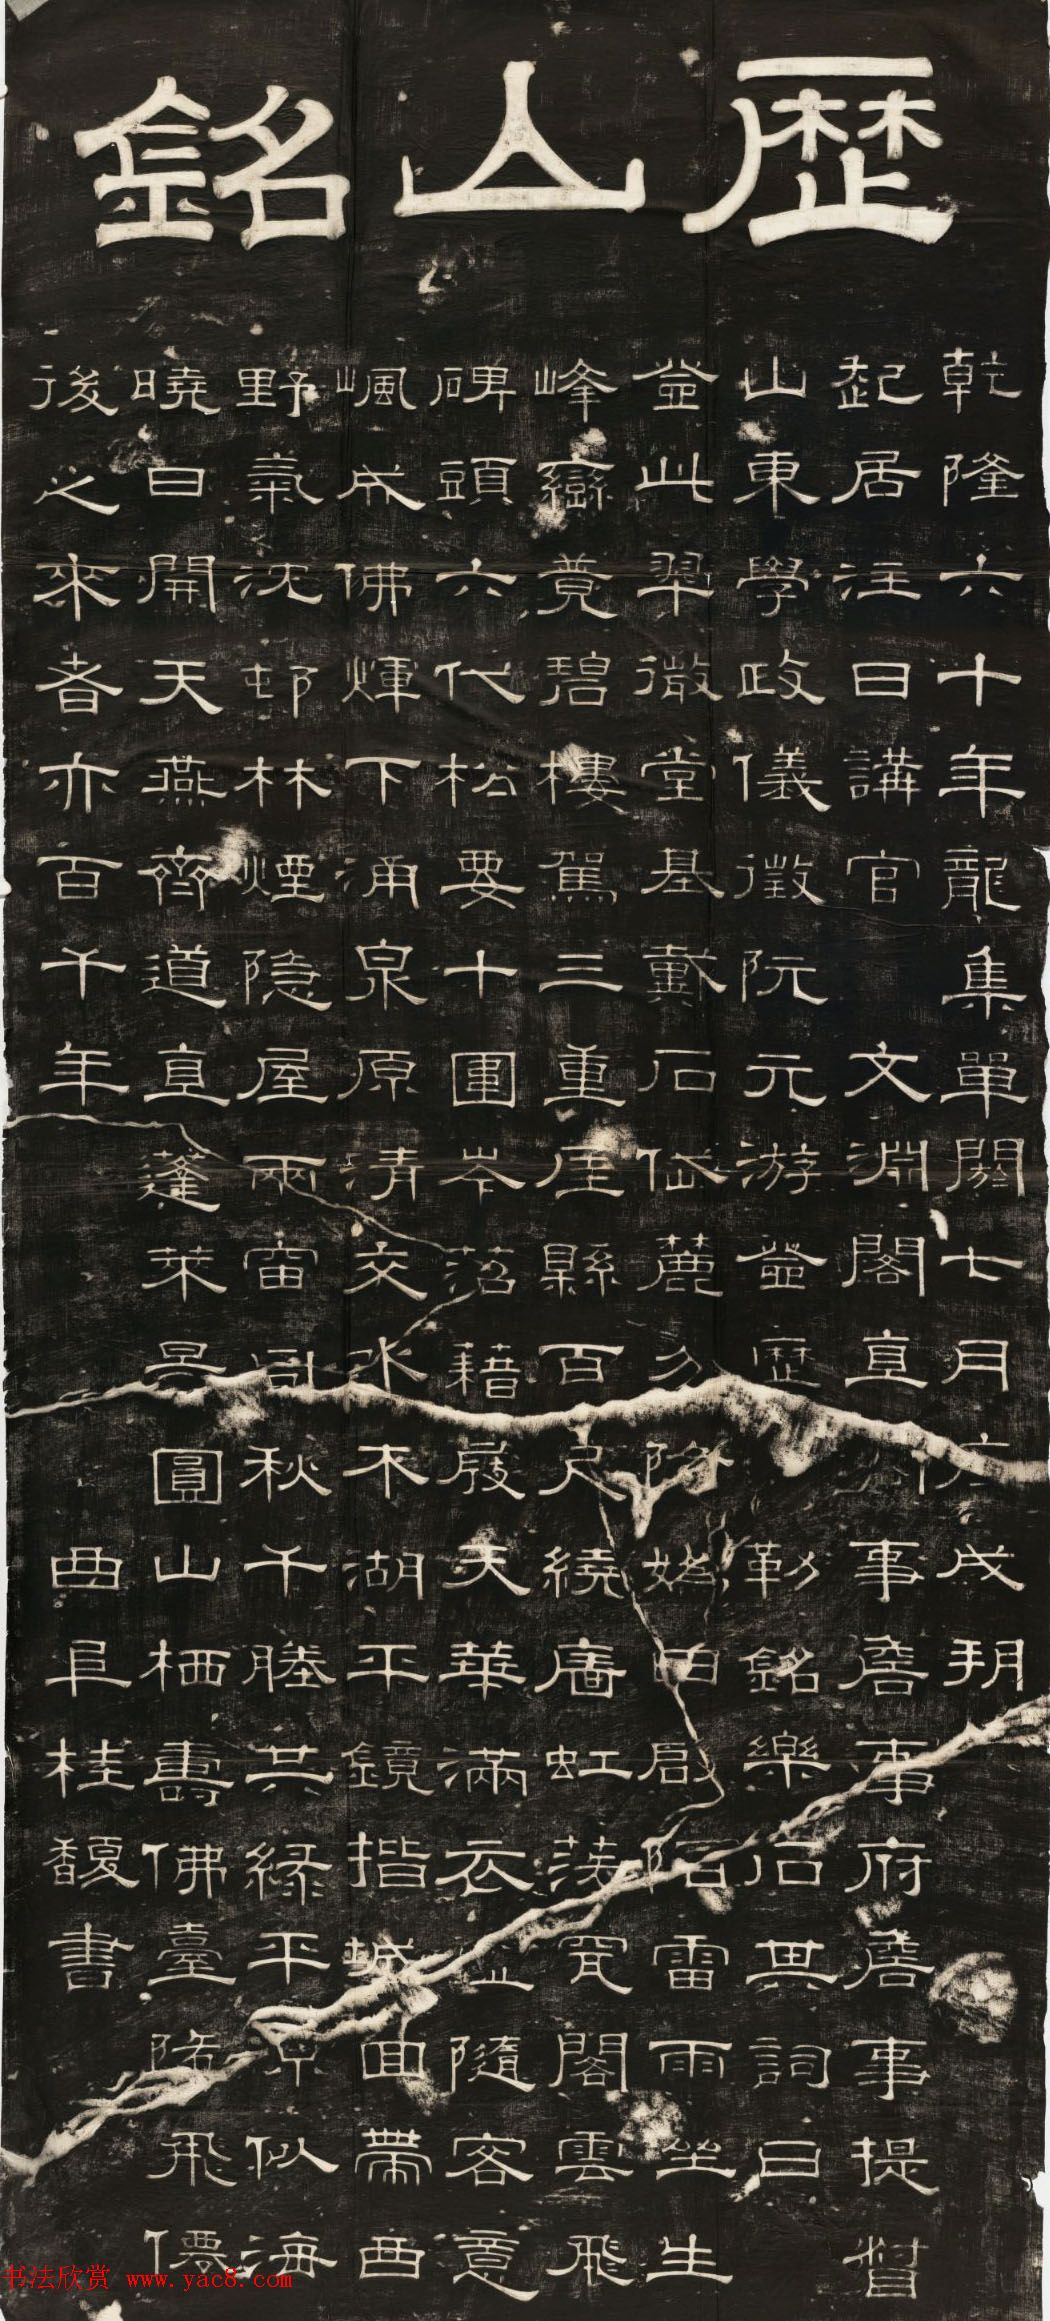 歷山銘
乾隆六十年龍集單閼七月庚戌朔
起居注日講官 文淵閣直閣事詹事府詹事提督
山東學政儀徵阮元游登歷 勒銘樂石其詞曰
登此翠微堂基戴石岱麓分陰姚田啟陌雷雨坐生
峰巒競碧樓駕三重厓縣百尺繞廧虹落 閣雲飛
碑頭六代松要十圍岑落藉屐天華滿衣 隨客意
嵐成佛煇下涌泉原清交水木湖平鏡揩城回帶曲
野氣沈邨林煙隐屋兩宙同秋千塍共綠平原似海
曉日開天燕齊道直蓬萊景圓山栖壽佛臺降飛僊
後之來者亦百千年
曲阜桂馥書
书法欣赏 www.yac8.com